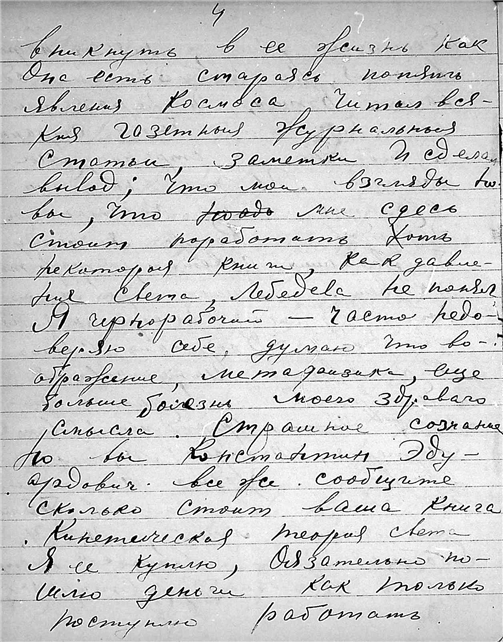 4
вникнуть в ее жизнь как
Она есть стараясь понять
явления Космоса Читал вся-
кия газетныя журнальныя
Статьи заметки И сделал
вывод; Что мои взгляды но
вы, Что мне сдесь
стоит поработать Хоть
некоторыя книги, как давле-
ния света, Лебедева не понял,
Я чернорабочий — часто недо-
веряю себе, думаю что во-
ображение, метафизика, еще
больше болезнь моего здраваго
смысла. Страшное сознание
Но вы Константин Эду-
ардович. все же. сообщите
сколько стоит ваша Книга
. Кинетическая теория света
Я ее куплю, Обязательно по-
шлю деньги как только
поступлю работать.